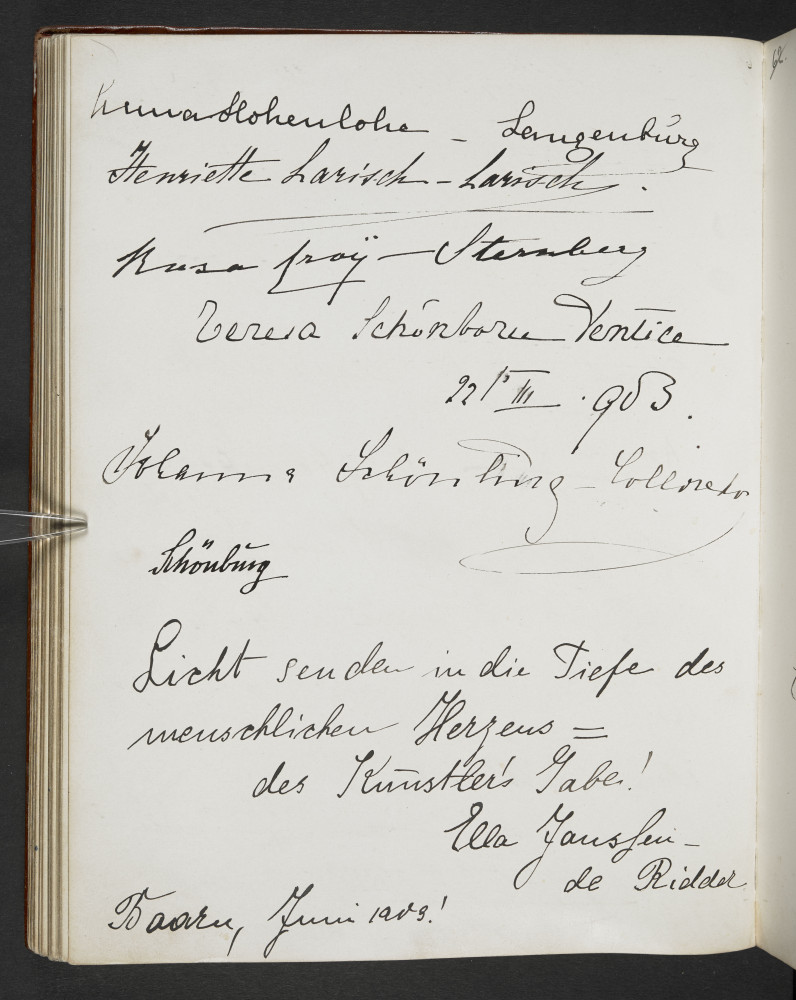 Anna Hohenlohe - Langenburg
Henriette Larisch - Larisch.
Rosa - Sternberg
Teresa Schönborn
22/III .903.
Johanna Schönburg - Colloredo
Schönburg
Licht senden in die Tiefe des
menschlichen Herzens =
des Künstler's Gabe!
Ella Janssen -
de Ridder
Baarn, Juni 1903!
62